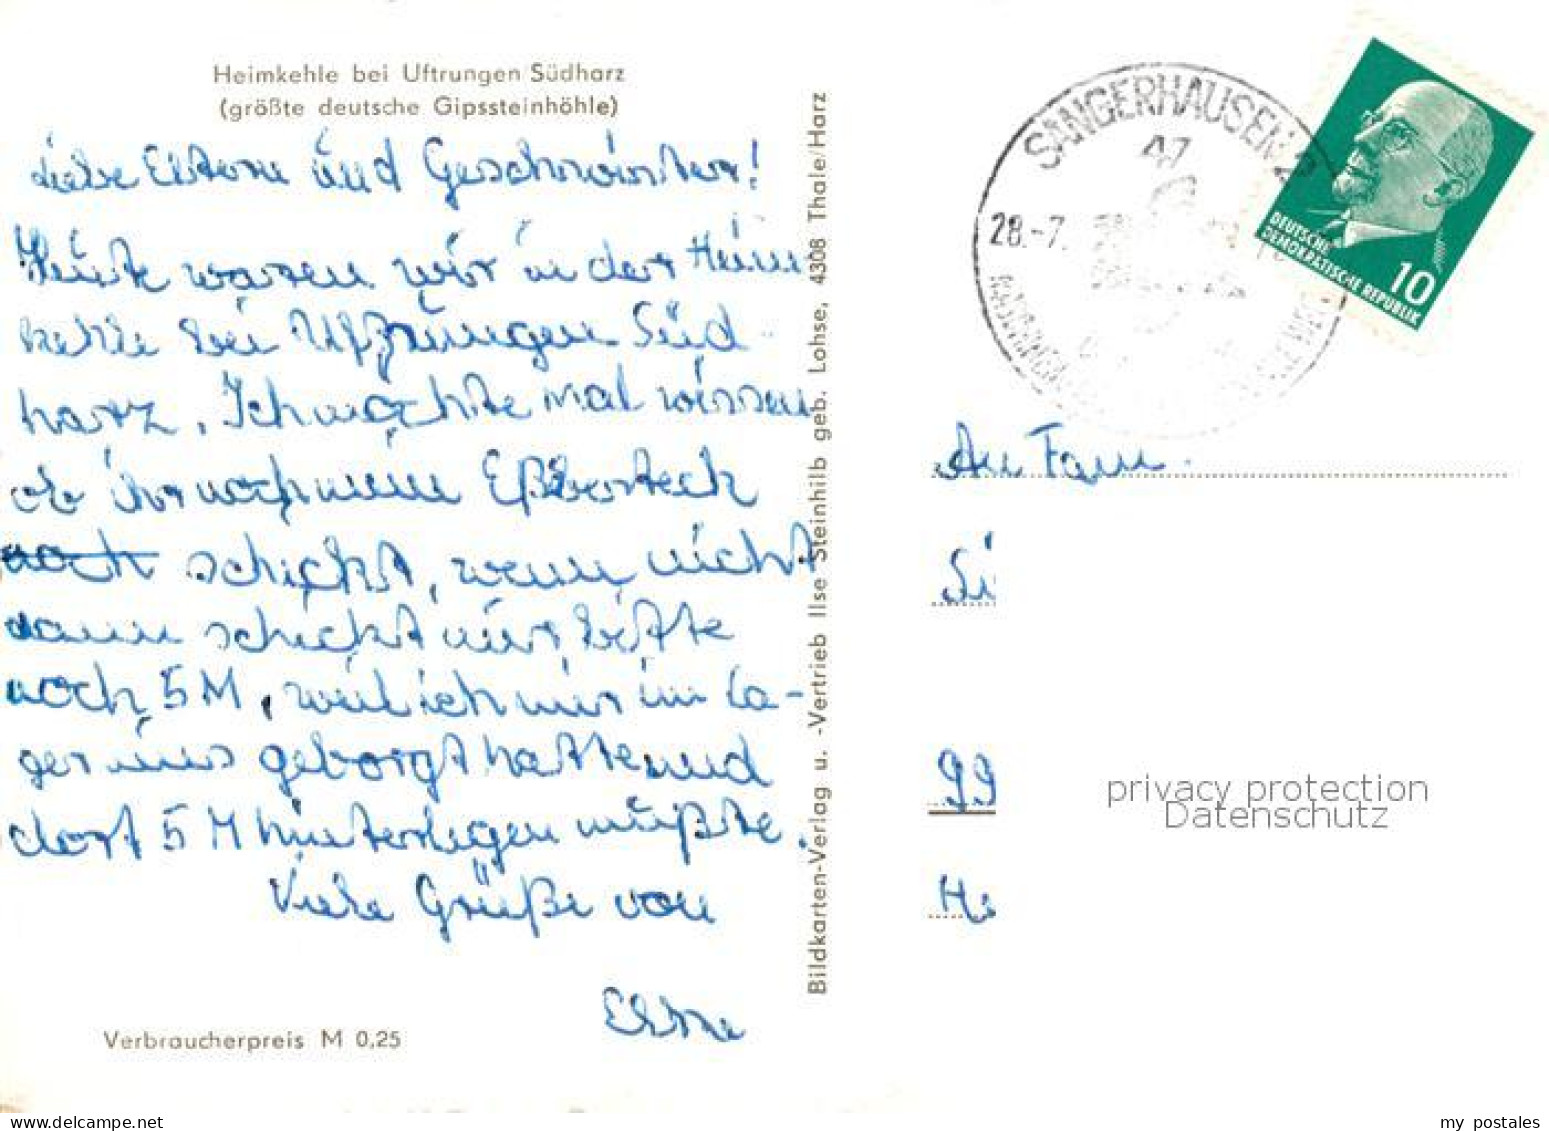 Heimkehle bei Uftrungen/Südharz
(größte deutsche Gipssteinhöhle)
Liebe Eltern und Geschwister!
Heute waren wir in der Heim
kehle bei Uftrungen Süd-
harz. Ich möchte mal wissen
ob ihr noch mein Eßbesteck
noch schickt, wenn nicht
dann schickt mir bitte
noch 5 M, weil ich mir im La-
ger eins geborgt hatte und
dort 5 M hinterlegen mußte.
Viele Grüße von
Verbraucherpreis M 0,25
Bildkarten-Verlag u. -Vertrieb Ilse Steinhilb geb. Lohse, 4308 Thale/Harz
SANGERHAUSEN 2
47
28.-7.
DEUTSCHE
DEMOKRATISCHE REPUBLIK
10
An Fam.
99
privacy protection
Datenschutz
www.delcampe.net
my_postales